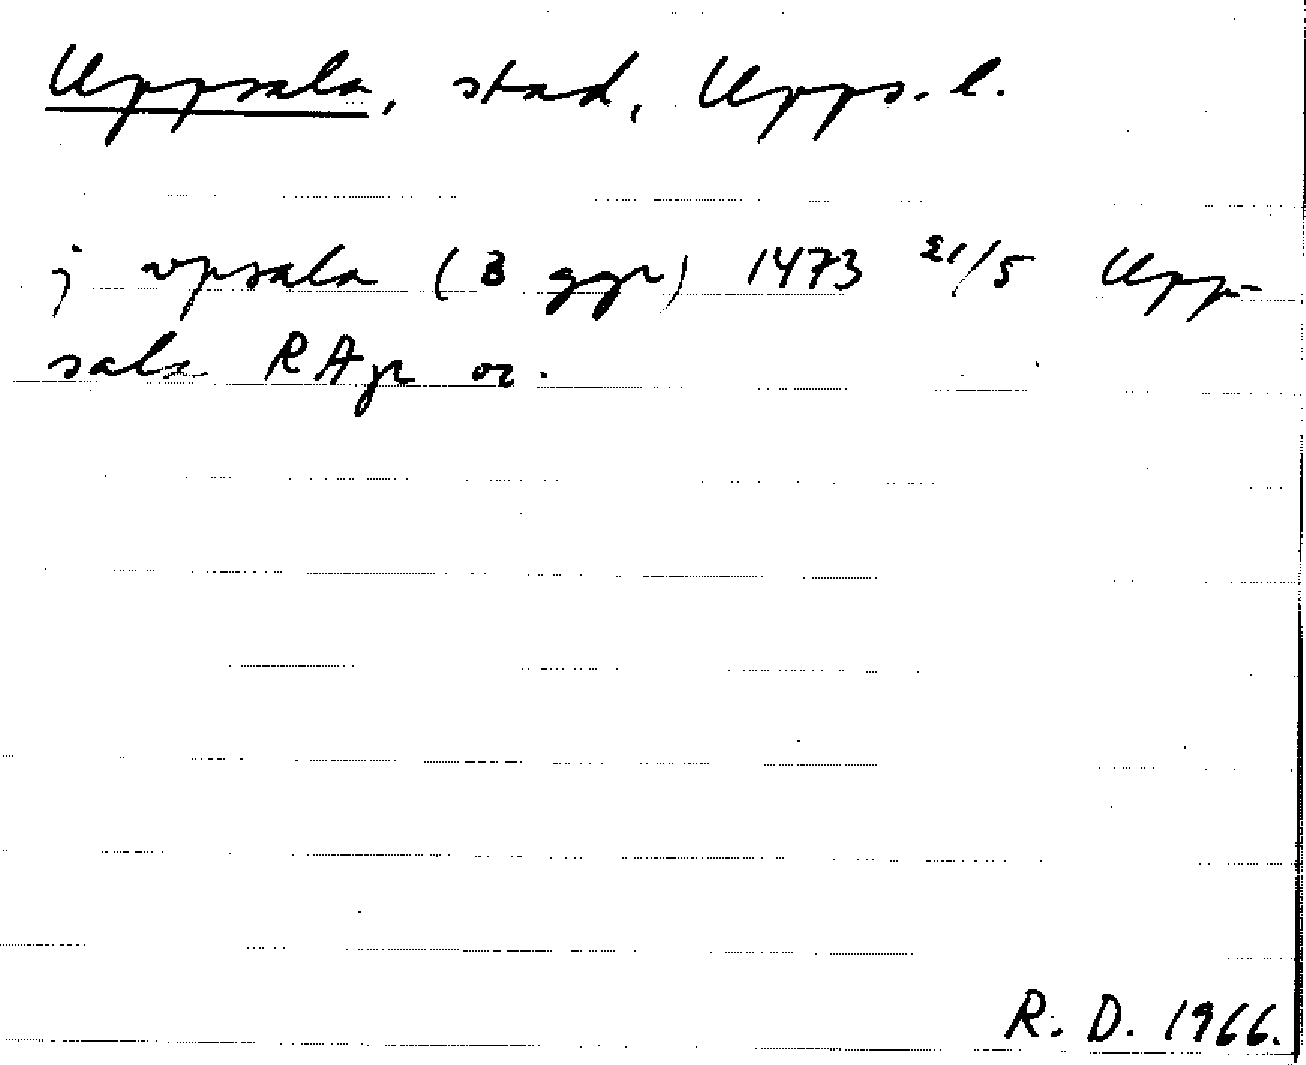 Uppsala, stad, Upps. l.
j vpsala (3 ggr) 1473 21/5 Upp-
sala RAp or.
R. D. 1966.